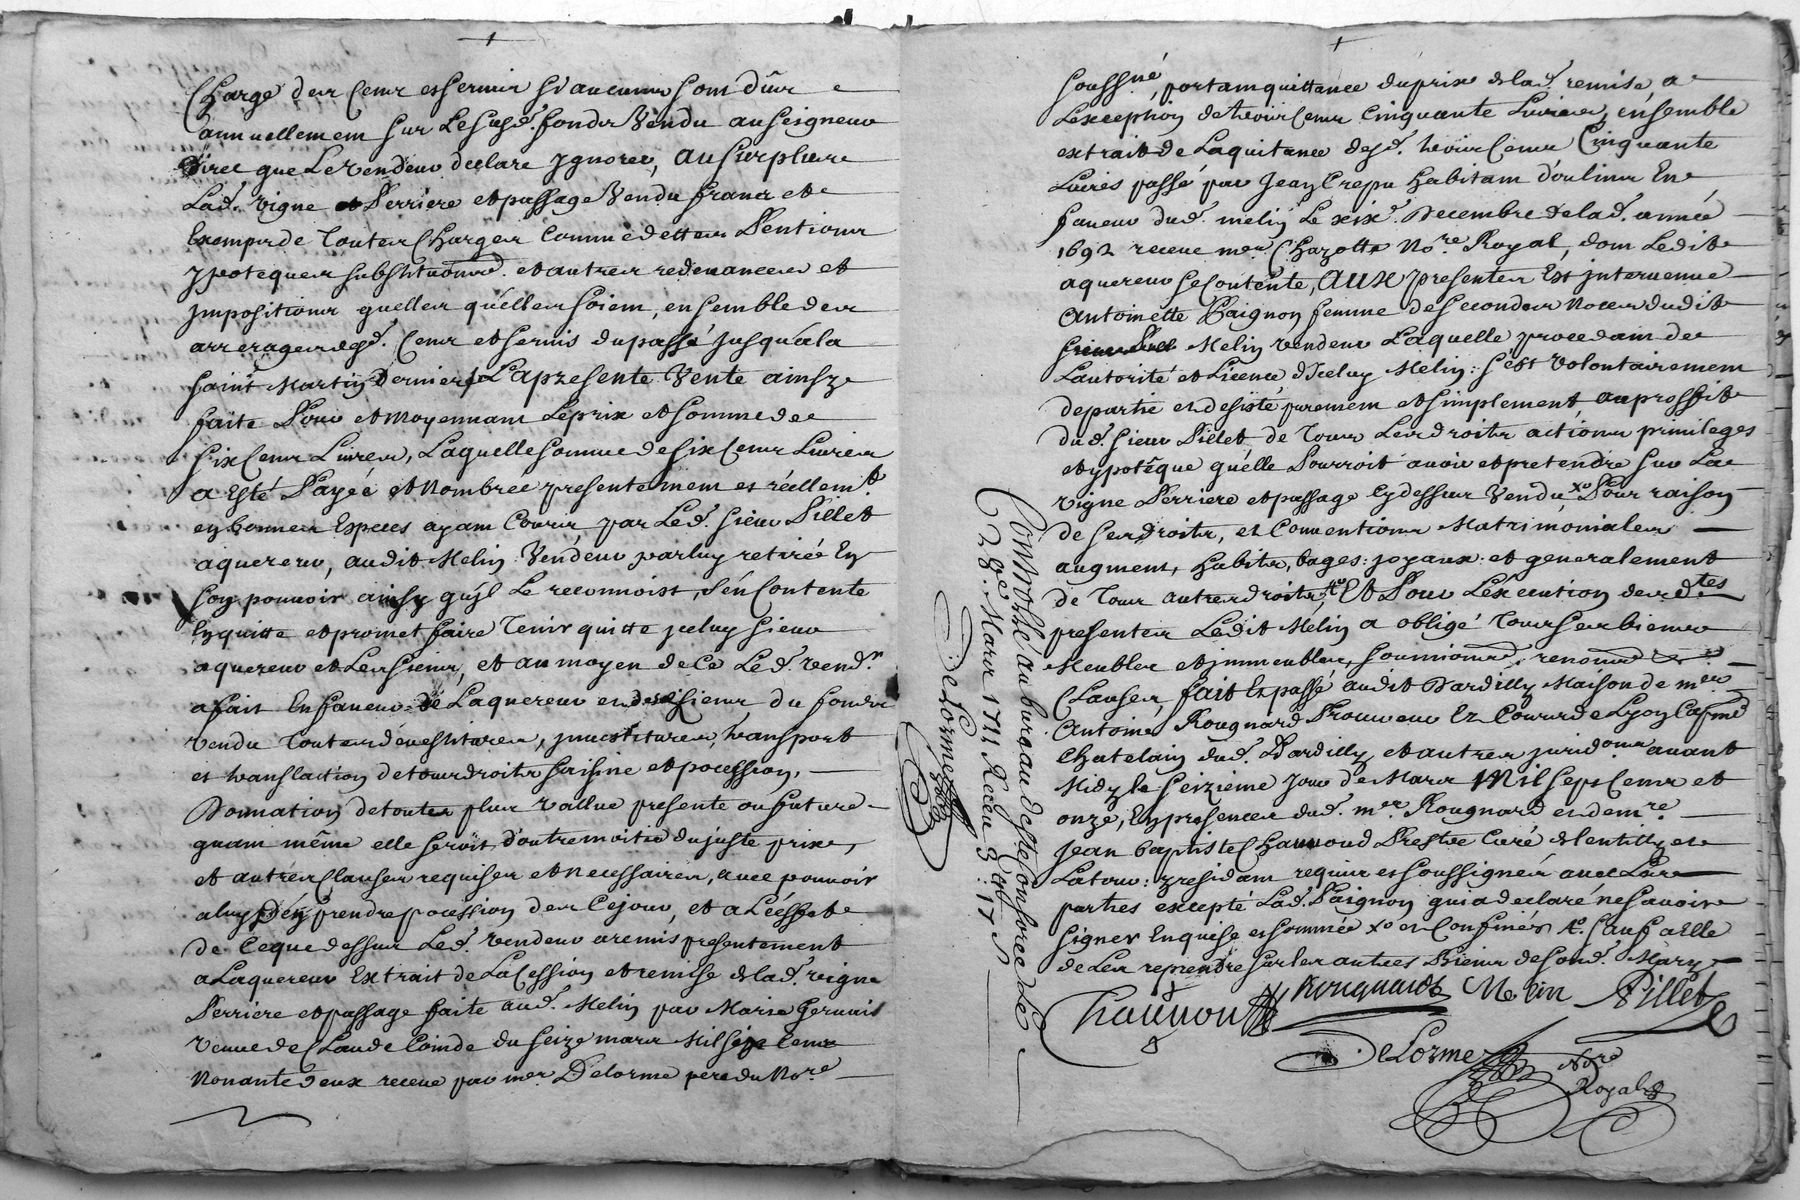 Charge des Cens et servis sy aucuns sont dûs
annuellement sur Le susd. fonds Vendu au seigneur
direc que Le vendeur declare Ignorer, au surplus
Lad. vigne et Terriere et passage Vendu franc et
Exemps de Toutes Charges Comme dettes Pentions
ypoteques substituons. et autres redevances et
Impositions quelles qu'elles soient, ensemble des
arrerages desd. Cens et servis du passé Jusqu'a la
saint Martin Dernier, La presente Vente ainsy
faite Pour et Moyennant Le prix et somme de
six Cens Livres, Laquelle somme de six Cens Livres
a Esté Payée et Nombree presentement et réellemt.
en bonnes Especes ayant Cours par Led. sieur Pillet
aquereur, audit Melin Vendeur par luy retirée En
son pouvoir ainsy qu'jl Le reconnoist, s'en Contente
En quitte et promet faire Tenir quitte jceluy sieur
aquereur et Les siens, et au moyen de Ce Led. vendr.
a fait En faveur de Laquereur et des siens du fonds
vendu Toutes devestitures, jnvestitures, transport
et translaction de tous droits saisine et pocession,
Donnation de toutes plus vallue presente ou future
quant même elle seroit d'outre moitié du juste prix,
et autres Clauses requises et necessaires, avec pouvoir
a luy D'en prendre pocession des Ce jour, et a L'effet
de Ce que dessus Led. vendeur a remis presentement
a Laquereur Extrait de La Cession et remise de lad. vigne
Terriere et passage faite aud. Melin par Marie Gervais
veuve de Claude Coinde du seize mars Mil six Cens
Nonante deux receue par mer. Delorme pere du Nore.
soussné, portant quittance du prix de lad. remise, a
L'exception de trois Cens Cinquante Livres, ensemble
extrait de La quitance desd. trois Cens Cinquante
Livres passé par Jean Crepu habitant d'oulins En
faveur dud. melin Le xixe. Decembre de lad. année
1692 receue mer. Chazotte Nore. Royal, dont Ledit
aquereur se Contente, AUX presentes Est jntervenue
Antoinette Paignon femme de secondes Noces dudit
Melin vendeur Laquelle procedant de
L'autorité et Licence d'Iceluy Melin: s'est volontairement
departie et desiste purement et simplement, au proffit
dud. sieur Pillet de Tous Les droits actions privileges
et ypotêque qu'elle Pourroit avoir et pretendre sur La
vigne Terriere et passage Cy dessus Vendu xo Pour raison
de ses Droits, et Conventions Matrimoniales
augment, habits, bages: joyaux: et generalement
de Tous autres droits, to Et Pour L'execution des dtes
presentes Ledit Melin a obligé Tous ses biens
Meubles et jmmeubles, soumions. renons. &
Clauses, fait Et passé audit Dardilly Maison de mer
Antoine Rougnard Procureur Ez Cours de Lyon Capne
Chatelain dud. Dardilly et autres juridons avant
Midy le seizieme Jour de Mars Mil sept Cens et
onze, En presences dud. mer. Rougnard et de mre.
Jean baptiste Chauvoud Prestre Curé de lentilly et
La tour: y residant requis et soussignés avec Les
parties excepté Lad. Paignon qui a declaré ne savoir
signer Enquise et sommée xo et Confinés to. sauf a Elle
de Les reprendre sur les autres Biens de sond. Mary
Chauvoud Rougnard Melin Pillet
DeLorme Nore
Royal
Controllé au bureau de St Conforce le
28e. Mars 1711 Receu 3 lt 17 s
DeLorme